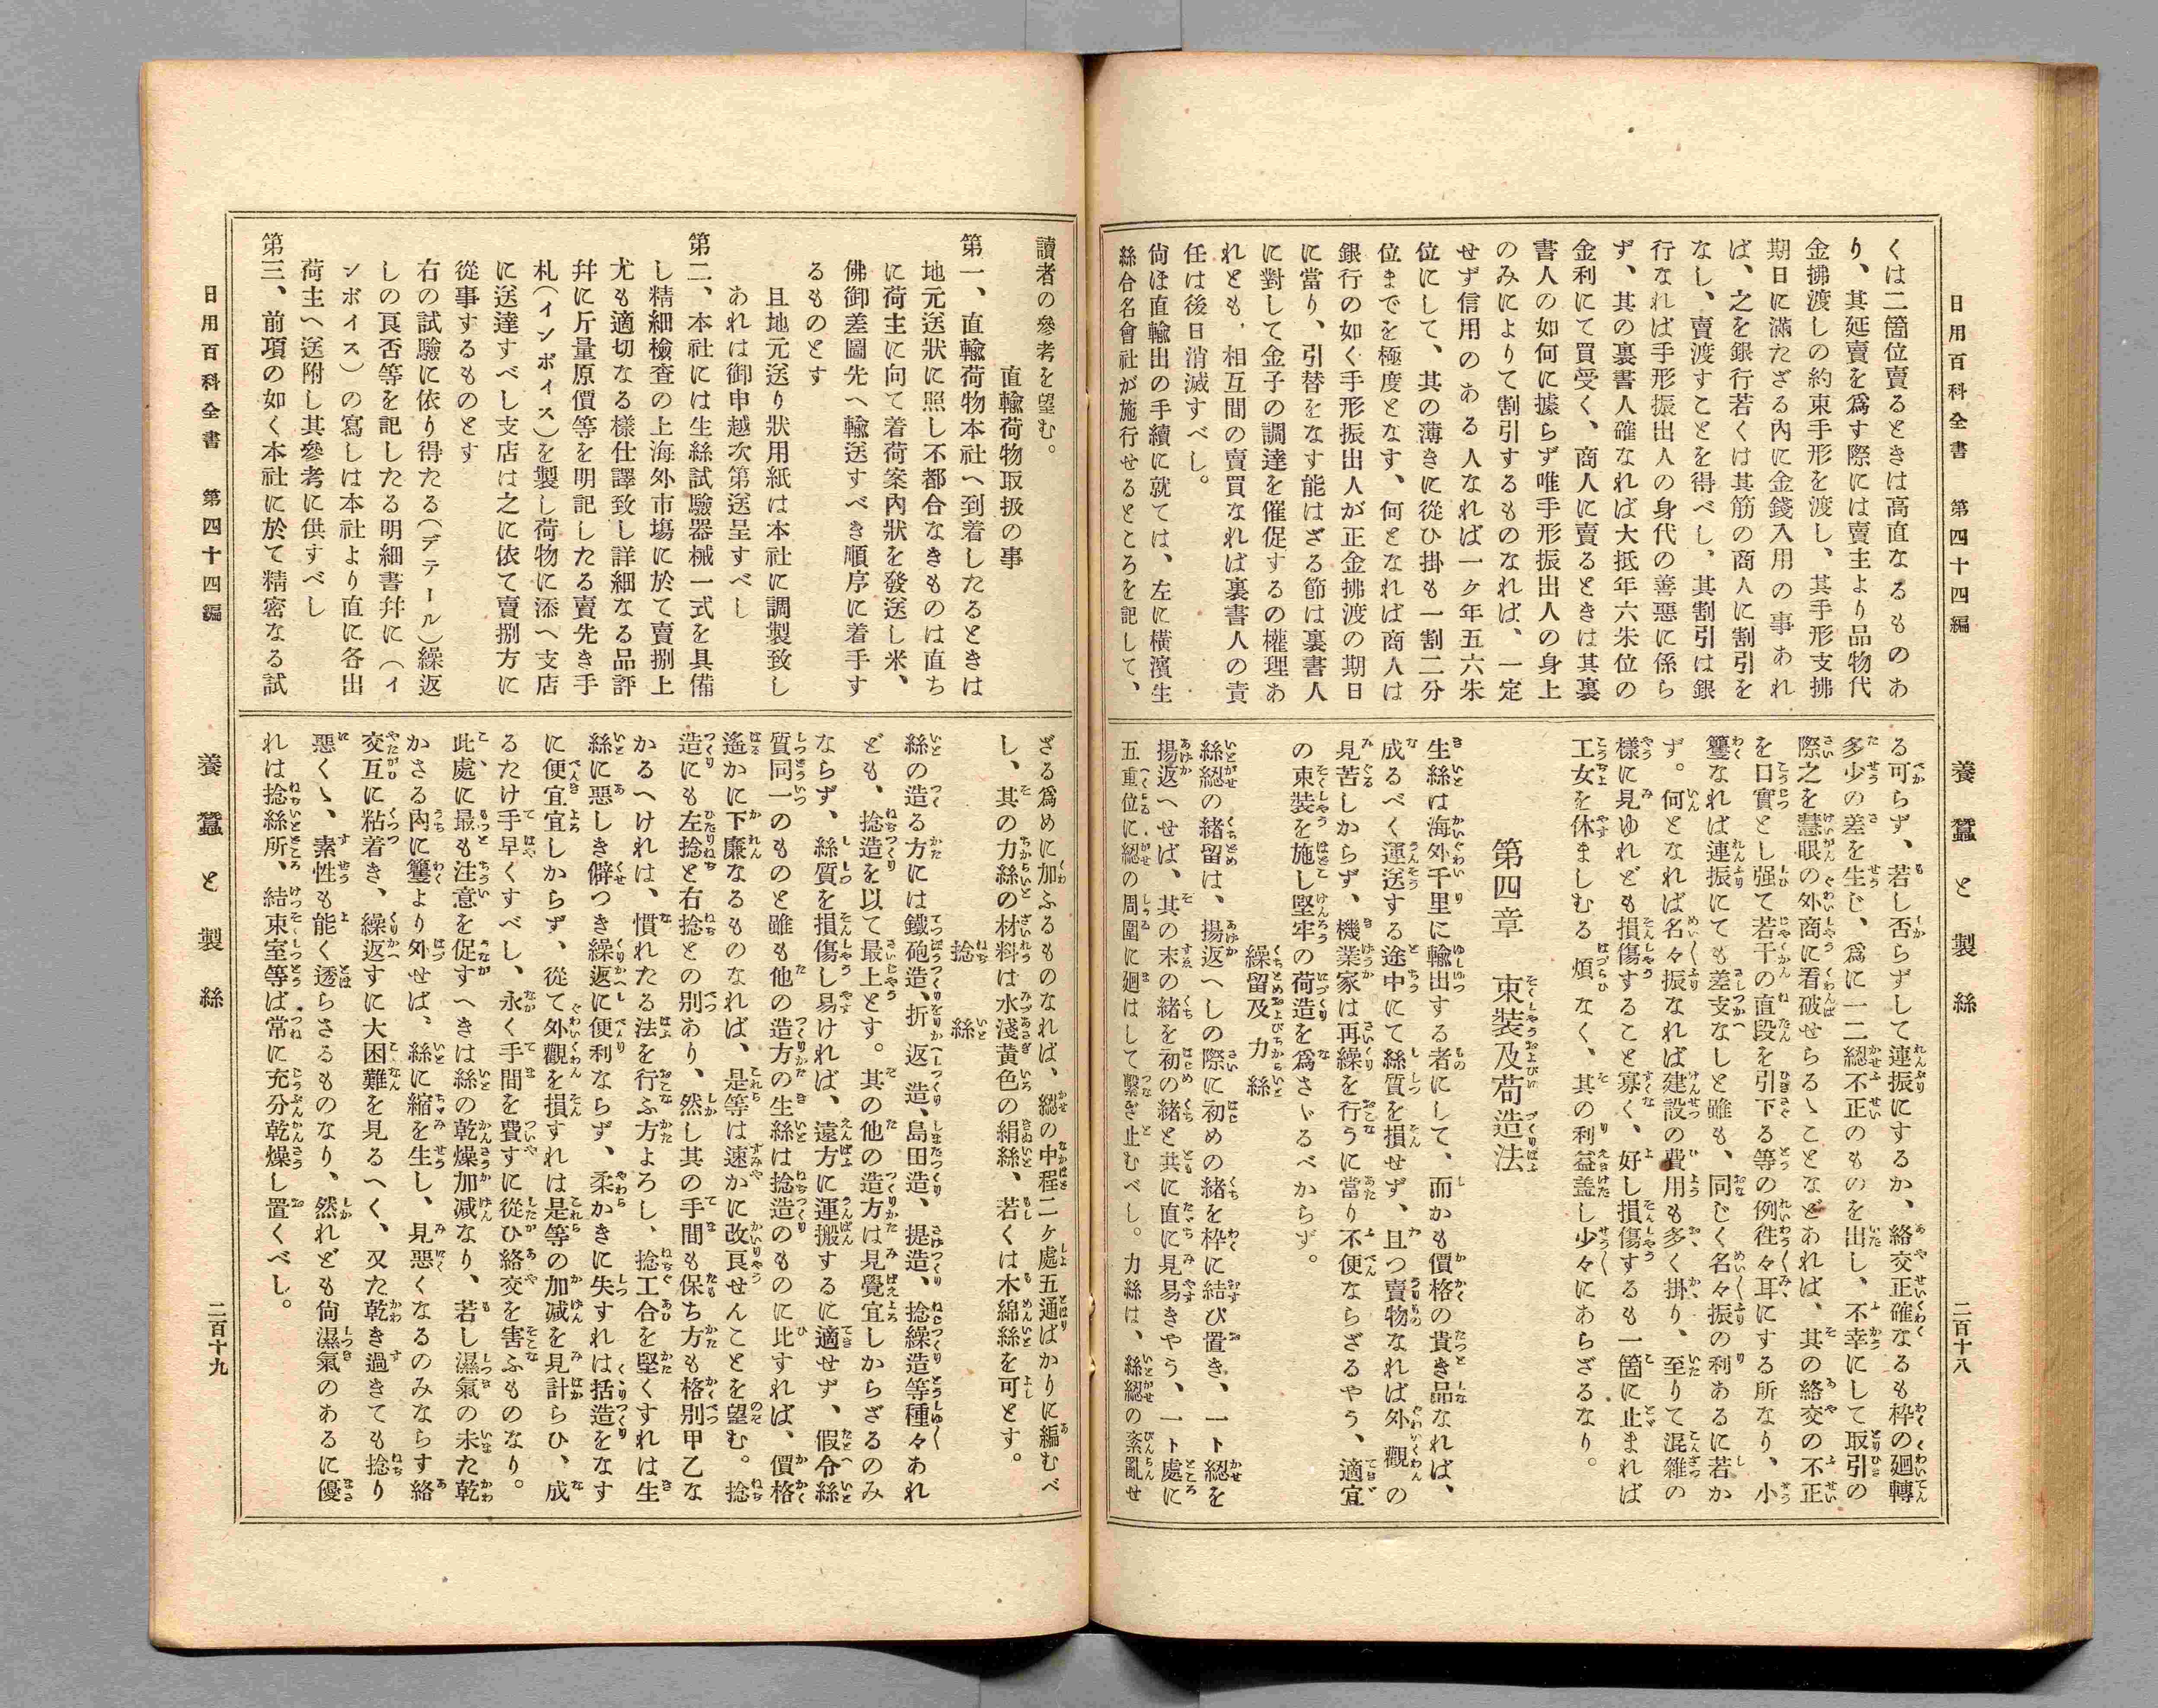 日用百科全書　第四十四編
養蠶と製絲
二百十八
くは二箇位賣るときは高直なるものあ
り、其延賣を爲す際には賣主より品物代
金拂渡しの約束手形を渡し、其手形支拂
期日に滿たざる內に金錢入用の事あれ
ば、之を銀行若くは其筋の商人に割引を
なし、賣渡すことを得べし、其割引は銀
行なれば手形振出人の身代の善惡に係ら
ず、其の裏書人確なれば大抵年六朱位の
金利にて買受く、商人に賣るときは其裏
書人の如何に據らず唯手形振出人の身上
のみによりて割引するものなれば、一定
せず信用のある人なれば一ケ年五六朱
位にして、其の薄きに從ひ掛も一割二分
位までを極度となす、何となれば商人は
銀行の如く手形振出人が正金拂渡の期日
に當り、引替をなす能はざる節は裏書人
に對して金子の調達を催促するの權理あ
れとも、相互間の賣買なれば裏書人の責
任は後日消滅すべし。
尙ほ直輸出の手續に就ては、左に橫濱生
絲合名會社が施行せるところを記して、
る可らず、若し否らずして連振にするか、絡交正確なるも枠の廻轉
多少の差を生じ、爲に一二綛不正のものを出し、不幸にして取引の
際之を慧眼の外商に看破せらるゝことなどあれば、其の絡交の不正
を口實とし强て若干の直段を引下る等の例徃々耳にする所なり、小
籰なれば連振にても差支なしと雖も、同じく名々振の利あるに若か
ず。何となれば名々振なれば建設の費用も多く掛り、至りて混雜の
樣に見ゆれども損傷すること寡く、好し損傷するも一箇に止まれば
工女を休ましむる煩なく、其の利益蓋し少々にあらざるなり。
第四章　束裝及荷造法
生絲は海外千里に輸出する者にして、而かも價格の貴き品なれば、
成るべく運送する途中にて絲質を損せず、且つ賣物なれば外觀の
見苦しからず、機業家は再繰を行うに當り不便ならざるやう、適宜
の束裝を施し堅牢の荷造を爲さゞるべからず。
繰留及力絲
絲綛の緒留は、揚返へしの際に初めの緒を枠に結び置き、一ト綛を
揚返へせば、其の末の緒を初の緒と共に直に見易きやう、一ト處に
五重位に綛の周圍に廻はして繫ぎ止むべし。力絲は、絲綛の紊亂せ
讀者の參考を望む。
直輸荷物取扱の事
第一、直輸荷物本社へ到着したるときは
地元送狀に照し不都合なきものは直ち
に荷主に向て着荷案內狀を發送し米、
佛御差圖先へ輸送すべき順序に着手す
るものとす
且地元送り狀用紙は本社に調製致し
あれは御申越次第送呈すべし
第二、本社には生絲試驗器械一式を具備
し精細檢查の上海外市塲に於て賣捌上
尤も適切なる樣仕譯致し詳細なる品評
幷に斤量原價等を明記したる賣先き手
札(インボイス)を製し荷物に添へ支店
に送達すべし支店は之に依て賣捌方に
從事するものとす
右の試驗に依り得たる(デテール)繰返
しの良否等を記したる明細書幷に(イ
ンボイス)の寫しは本社より直に各出
荷主へ送附し其參考に供すべし
第三、前項の如く本社に於て精密なる試
ざる爲めに加ふるものなれば、綛の中程二ヶ處五通ばかりに編むべ
し、其の力絲の材料は水淺黃色の絹絲、若くは木綿絲を可とす。
捻絲
絲の造る方には鐵砲造、折返造、島田造、提造、捻繰造等種々あれ
ども、捻造を以て最上とす。其の他の造方は見覺宜しからざるのみ
ならず、絲質を損傷し易ければ、遠方に運搬するに適せず、假令絲
質同一のものと雖も他の造方の生絲は捻造のものに比すれば、價格
遙かに下廉なるものなれば、是等は速かに改良せんことを望む。捻
造にも左捻と右捻との別あり、然し其の手間も保ち方も格別甲乙な
かるへけれは、慣れたる法を行ふ方よろし、捻工合を堅くすれは生
絲に惡しき僻つき繰返に便利ならず、柔かきに失すれは括造をなす
に便宜宜しからず、從て外觀を損すれは是等の加減を見計らひ、成
るたけ手早くすべし、永く手間を費すに從ひ絡交を害ふものなり。
此處に最も注意を促すへきは絲の乾燥加減なり、若し濕氣の未た乾
かさる內に籰より外せば、絲に縮を生し、見惡くなるのみならす絡
交互に粘着き、繰返すに大困難を見るへく、又た乾き過きても捻り
惡くゝ、素性も能く透らさるものなり、然れども尙濕氣のあるに優
れは捻絲所、結束室等ば常に充分乾燥し置くべし。
日用百科全書　第四十四編
養蠶と製絲
二百十九